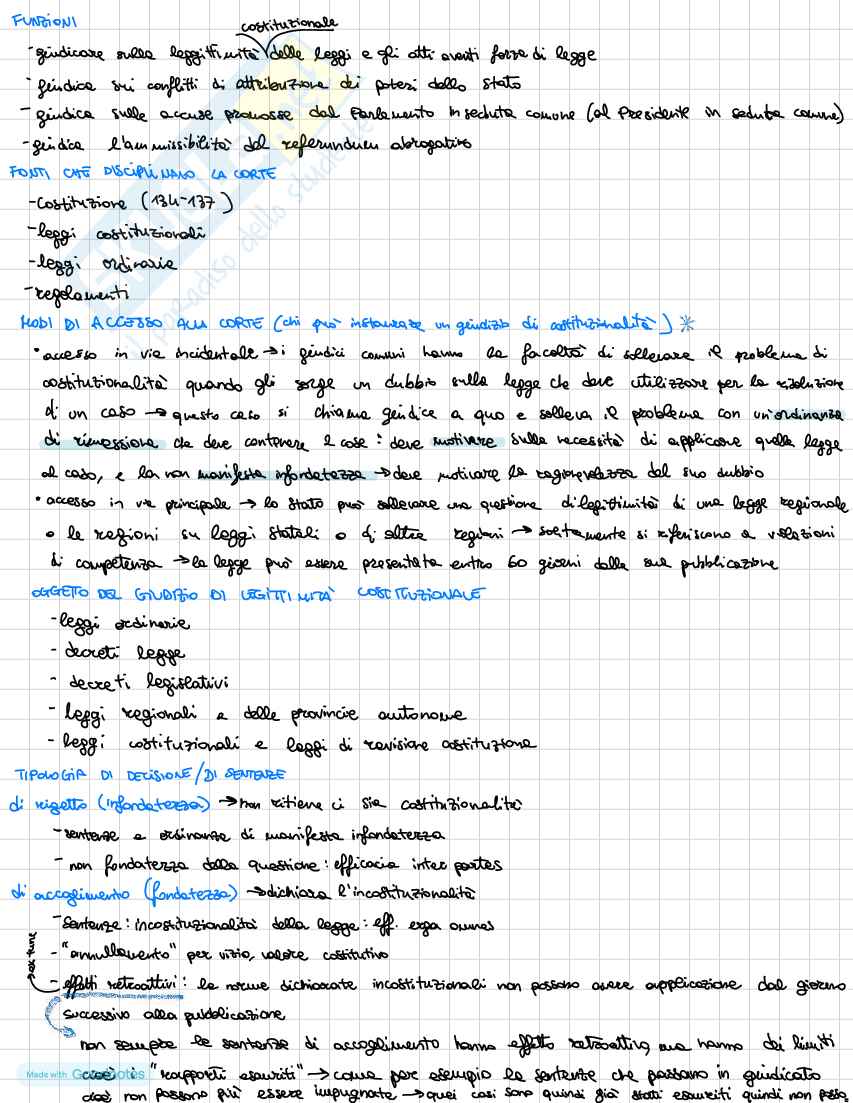 FUNZIONI
costituzionale
-giudicare sulla leggittimità delle leggi e gli atti aventi forza di legge
- giudica sui conflitti di attribuzione dei poteri dello stato
- giudica sulle accuse promosse dal Parlamento in seduta comune (al Presidente in seduta comune)
-giudica l'ammissibilità del referendum abrogativo
FONTI CHE DISCIPLINANO LA CORTE
-Costituzione (134-137)
-leggi costituzionali
-leggi ordinarie
-regolamenti
MODI DI ACCESSO ALLA CORTE (chi può instaurare un giudizio di costituzionalità) *
• accesso in via incidentale → i giudici comuni hanno la facoltà di sollevare il problema di
costituzionalità quando gli sorge un dubbio sulla legge che deve utilizzare per la risoluzione
di un caso → questo caso si chiama giudice a quo e solleva il problema con un'ordinanza
di rimessione che deve contenere 2 cose: deve motivare sulla necessità di applicare quella legge
al caso, e la non manifesta infondatezza → deve motivare la ragionevolezza del suo dubbio
• accesso in via principale → lo stato può sollevare una questione di legittimità di una legge regionale
o le regioni su leggi statali o di altre regioni → solitamente si riferiscono a violazioni
di competenza → la legge può essere presentata entro 60 giorni dalla sua pubblicazione
OGGETTO DEL GIUDIZIO DI LEGITTIMITÀ COSTITUZIONALE
-leggi ordinarie
- decreti legge
- decreti legislativi
- leggi regionali e delle provincie autonome
- leggi costituzionali e leggi di revisione costituzione
TIPOLOGIA DI DECISIONE/DI SENTENZE
di rigetto (infondatezza) → non ritiene ci sia costituzionalità
-sentenze e ordinanze di manifesta infondatezza
- non fondatezza della questione: efficacia inter partes
di accoglimento (fondatezza) → dichiara l'incostituzionalità
-sentenze: incostituzionalità della legge: eff. erga omnes
- "annullamento" per vizio, valore costitutivo
ex tunc
- effetti retroattivi: le norme dichiarate incostituzionali non possono avere applicazione dal giorno
successivo alla pubblicazione
non sempre le sentenze di accoglimento hanno effetto retroattivo, ma hanno dei limiti
cioè i "rapporti esauriti" → come per esempio le sentenze che passano in giudicato
cioè non possono più essere impugnate → quei casi sono quindi già stati esauriti quindi non posso
Made with Goodnotes
il paradiso dello studente